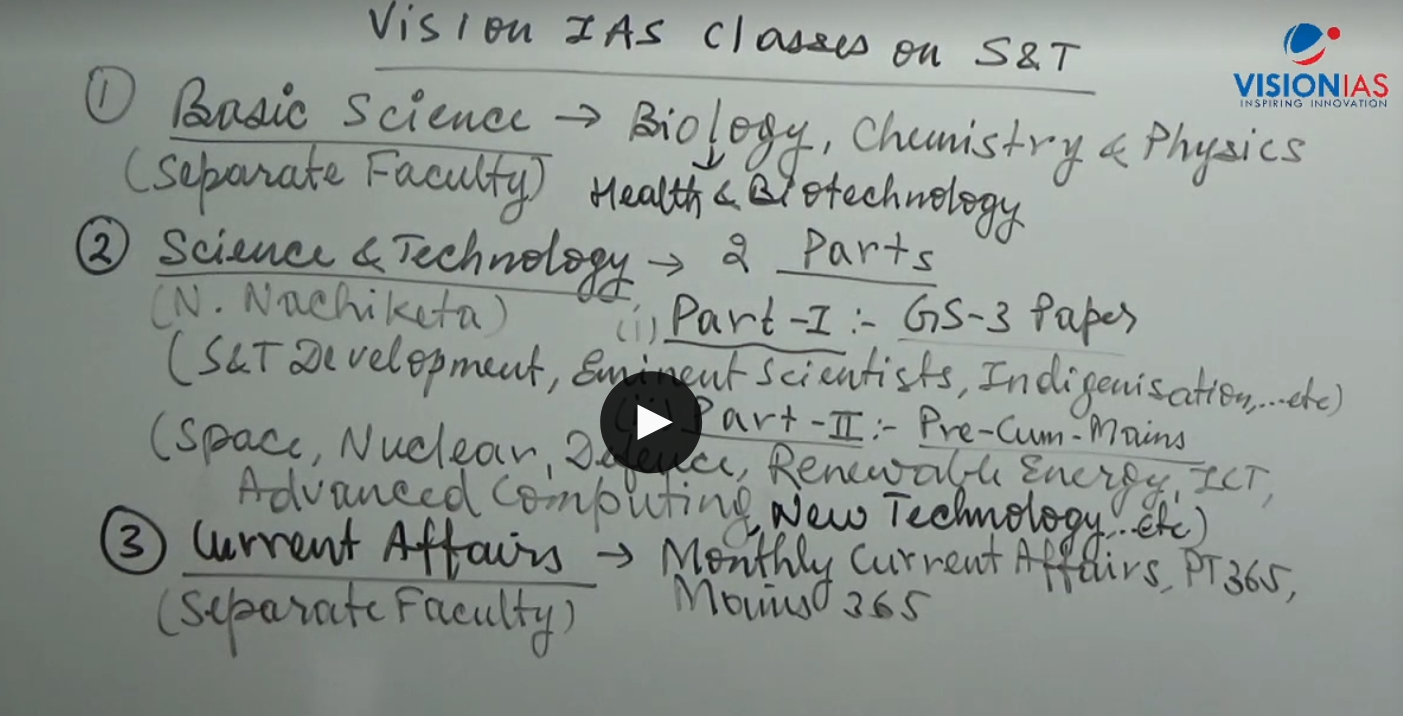 Vision IAS Classes on S&T
VISIONIAS
INSPIRING INNOVATION
① Basic Science → Biology, Chemistry & Physics
(Separate Faculty) ↓
Health & Biotechnology
② Science & Technology → 2 Parts
(N. Nachiketa) (i) Part-I :- GS-3 Paper
(S&T Development, Eminent Scientists, Indigenisation,...etc)
(ii) Part-II :- Pre-Cum-Mains
(Space, Nuclear, Defence, Renewable Energy, ICT,
Advanced Computing, New Technology,...etc)
③ Current Affairs → Monthly Current Affairs, PT365,
(Separate Faculty) Mains 365